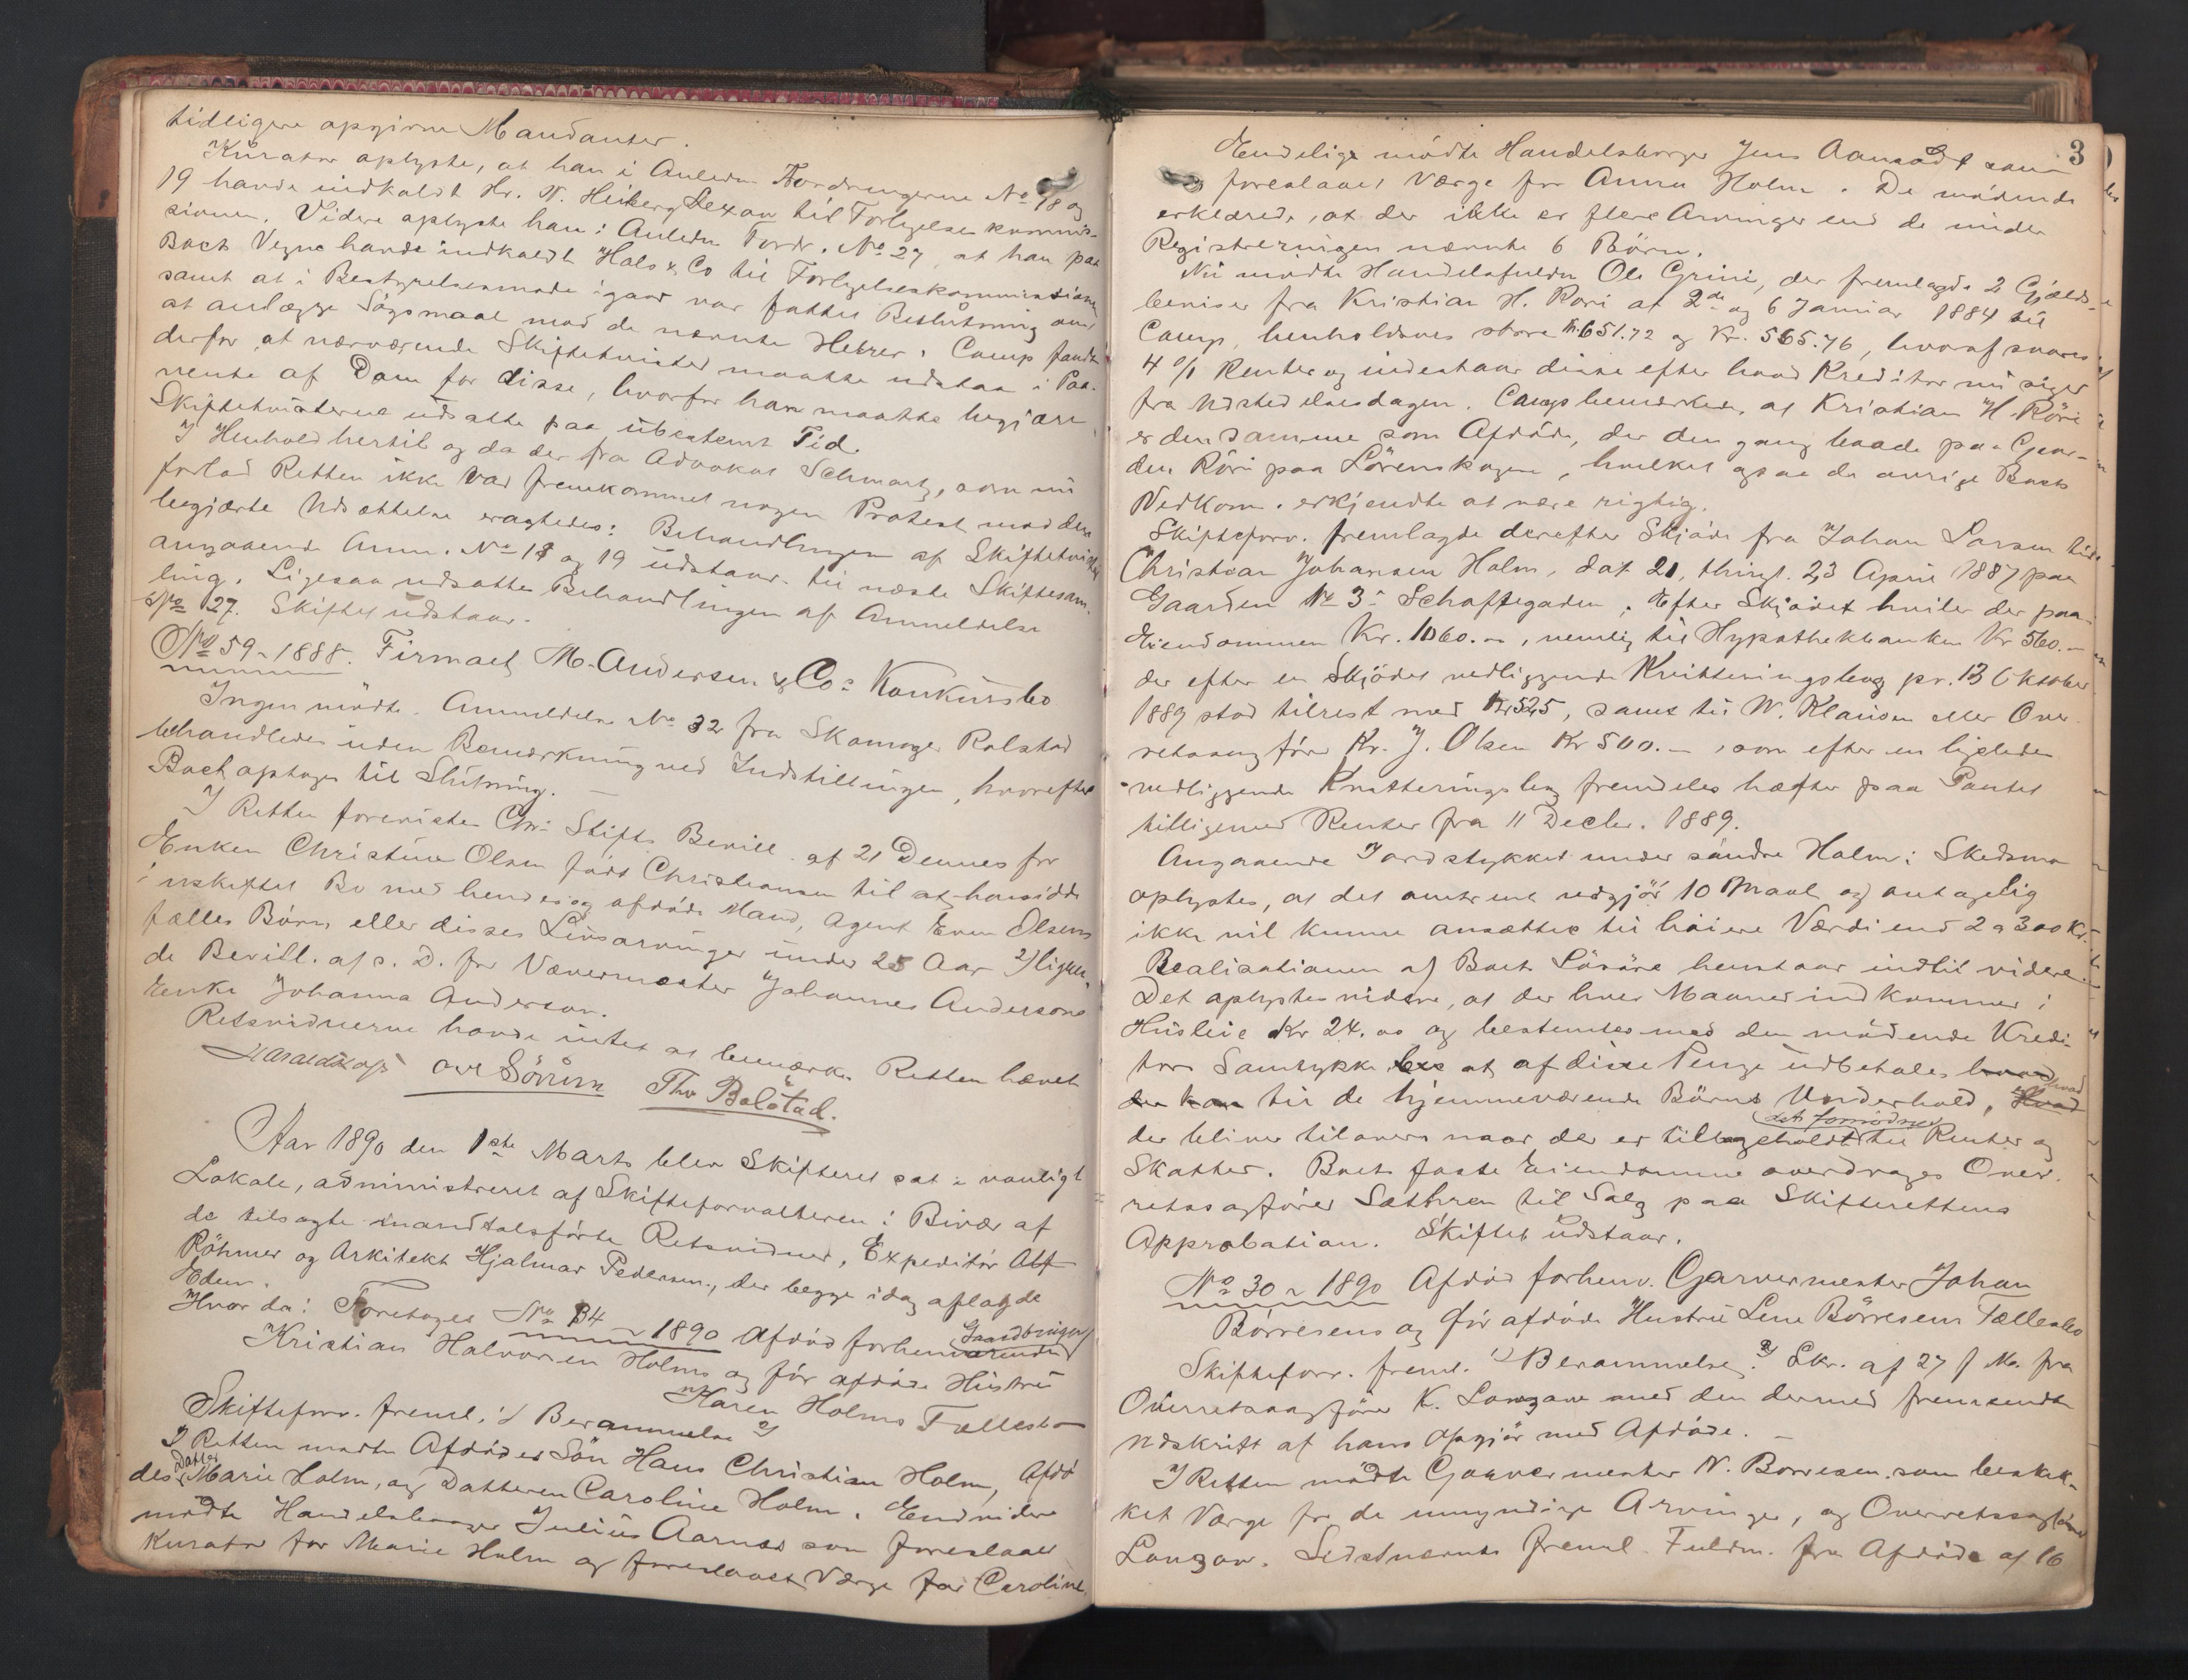 tidligere opgivne Mandanter.
Kurator oplyste, at han i Anledn. Fordringerne No 18 og
19 havde indkaldt Hr. N. Heiberg Lexow til Forligelseskommis-
sionen. Videre oplyste han i Anledn. Fordr. No 27, at han paa
Boets Vegne havde indkaldt Hals & Co til Forligelseskommissionen
samt at i Bestyrelsesmøde igaar var fattet Beslutning om
at anlægge Søgsmaal mod de nævnte Herrer. Camp fandt
derfor, at nærværende Skiftetvister maatte udstaa i Paa-
vente af Dom for disse, hvorfor han maatte begjære
Skiftetvisterne udsatte paa ubestemt Tid.
I Henhold hertil og da der fra Advokat Schwartz, som nu
forlod Retten ikke var fremkommet nogen Protest mod den
begjærte Udsættelse eragtedes: Behandlingen af Skiftetvisten
angaaende Anm. No 18 og 19 udstaar til næste Skiftesam-
ling. Ligesaa udsattes Behandlingen af Anmeldelse
No 27. Skiftet udstaar.
No 59 - 1888. Firmaet M. Andersen & Co's Konkursbo
Ingen mødte. Anmeldelse No 32 fra Skomager Rolstad
behandledes uden Bemærkning ved Indstillingen, hvorefter
Boet optages til Slutning. —
I Retten forevistes Chr. Stifts Bevill. af 21 Dennes for
Enken Christine Olsen født Christiansen til at hensidde
i uskiftet Bo med hendes og afdøde Mand, Agent Even Olsens
fælles Børn eller disses Livsarvinger under 25 Aar 2) lignen-
de Bevill. af s. D. for Vævermester Johannes Andersons
Enke Johanna Anderson.
Retsvidnerne havde intet at bemærke. Retten hævet
Ove Sørum Thv Bolstad.
Aar 1890 den 1ste Marts blev Skifteret sat i vanligt
Lokale, administreret af Skifteforvalteren i Bivær af
de tilsagte mandtalsførte Retsvidner, Expeditør Alf
Röhmer og Arkitekt Hjalmar Pedersen, der begge idag aflagde
Eden.
Hvor da: Foretoges No 34 - 1890 Afdød forhenværende Gaardbruger
Kristian Halvorsen Holms og før afdøde Hustru
Karen Holms Fællesbo
Skifteforv. freml. 1) Berammelse
I Retten mødte Afdødes Søn Hans Christian Holm, Afdø-
des Datter Marie Holm, og Datteren Caroline Holm. Endvidere
mødte Handelsborger Julius Aarnæs som foreslaaet
Kurator for Marie Holm og foreslaaet Værge for Caroline.
3
Endelig mødte Handelsborger Jens Aamodt som
foreslaaet Værge for Anna Holm. De mødende
erklærede, at der ikke er flere Arvinger end de under
Registreringen nævnte 6 Børn.
Nu mødte Handelsfuldm. Ole Grini, der fremlagde 2 Gjælds-
beviser fra Kristian H. Röri af 2de og 6 Januar 1884 til
Camp, henholdsvis store Kr. 651.72 og Kr. 565.76, hvoraf svares
4 % Renter og indestaar disse efter hvad Kreditor nu siger
fra Udstedelsesdagen. Camp bemærkede, at Kristian H. Röri
er den samme som Afdøde, der den gang boede paa Gaar-
den Röri paa Lörenskogen, hvilket ogsaa de øvrige Boets
Vedkom. erkjendte at være rigtig.
Skifteforv. fremlagde derefter Skjøde fra Johan Larsen til
Christian Johansen Holm, dat. 21, thingl. 23 April 1887 paa
Gaarden No 3 i Schaftegaden. Efter Skjødet hviler der paa
Eiendommen Kr. 1060.—, nemlig til Hypothekbanken Kr 560.—
der efter en Skjødet vedliggende Kvitteringsbog pr. 13 Oktober
1889 stod tilrest med Kr 525, samt til N. Klausen eller Over-
retssagfører Kr. J. Olsen Kr 500.—, som efter en ligeledes
vedliggende Kvitteringsbog fremdeles hæfter paa Pantet
tilligemed Renter fra 11 Decbr. 1889.
Angaaende Jordstykket under søndre Holm i Skedsmo
oplystes, at det omtrent udgjør 10 Maal og antagelig
ikke vil kunne ansættes til høiere Værdi end 2 a 300 Kr.
Realisationen af Boets Løsøre henstaar indtil videre.
Det oplystes videre, at der hver Maaned indkommer i
Husleie Kr 24.00 og bestemtes med den mødende Kredi-
tors Samtykke at af disse Penge udbetales hvad
der kan til de hjemmeværende Børns Underhold, hvad
der bliver tilovers naar der er tilbageholdt det fornødne til Renter og
Skatter. Boets faste Eiendomme overdrages Over-
retssagfører Sæthren til Salg paa Skifterettens
Approbation. Skiftet udstaar.
No 30 - 1890 Afdød forhenv. Garvermester Johan
Børresens og før afdøde Hustru Lene Børresens Fællesbo
Skifteforv. freml. 1) Berammelse. 2) Skr. af 27 f. M. fra
Overretssagfører K. Langaae med den dermed fremsendte
Udskrift af hans Opgjør med Afdøde. —
I Retten mødte Garvermester N. Børresen som beskik-
ket Værge for de umyndige Arvinger, og Overretssagfører
Langaae. Sidstnævnte freml. Fuldm. fra Afdøde af 16